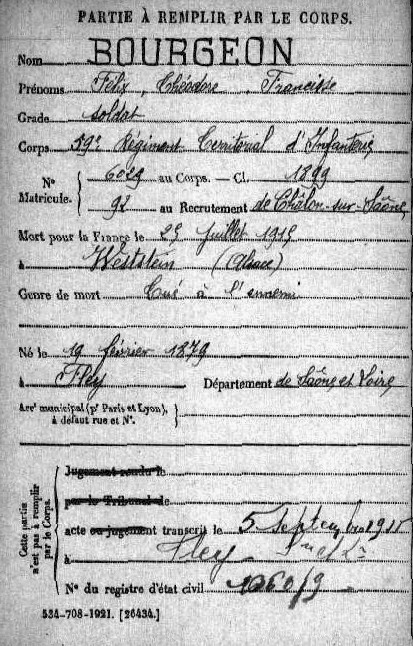 PARTIE À REMPLIR PAR LE CORPS.
Nom BOURGEON
Prénoms Félix, Théodore, Francisse
Grade soldat
Corps 59e Régiment Territorial d'Infanterie
N° Matricule. 6029 au Corps. — Cl. 1899
92 au Recrutement de Châlon-sur-Saône
Mort pour la France le 25 Juillet 1915
à Wëststein (Alsace)
Genre de mort Tué à l'ennemi
Né le 19 février 1879
à Fley Département de Saône et Loire
Arrt municipal (pr Paris et Lyon), à défaut rue et N°.
Cette partie n'est pas à remplir par le Corps.
Jugement rendu le
par le Tribunal de
acte ou jugement transcrit le 5 Septembre 1915
à Fley
N° du registre d'état civil
534-708-1921. [26434.]